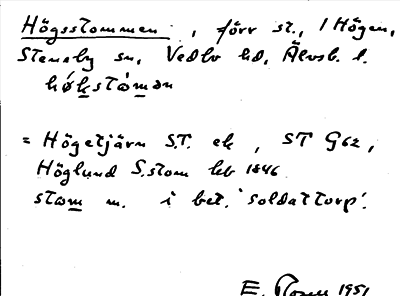 Högsstommen, förr st., 1 Högen,
Steneby sn, Vedbo hd, Älvsb. l.
hǿkstòmən
= Högetjärn S.T. ek, ST G62,
Höglund S.stom hb 1846
stom m. i bet. 'soldattorp'.
E. Rosen 1951